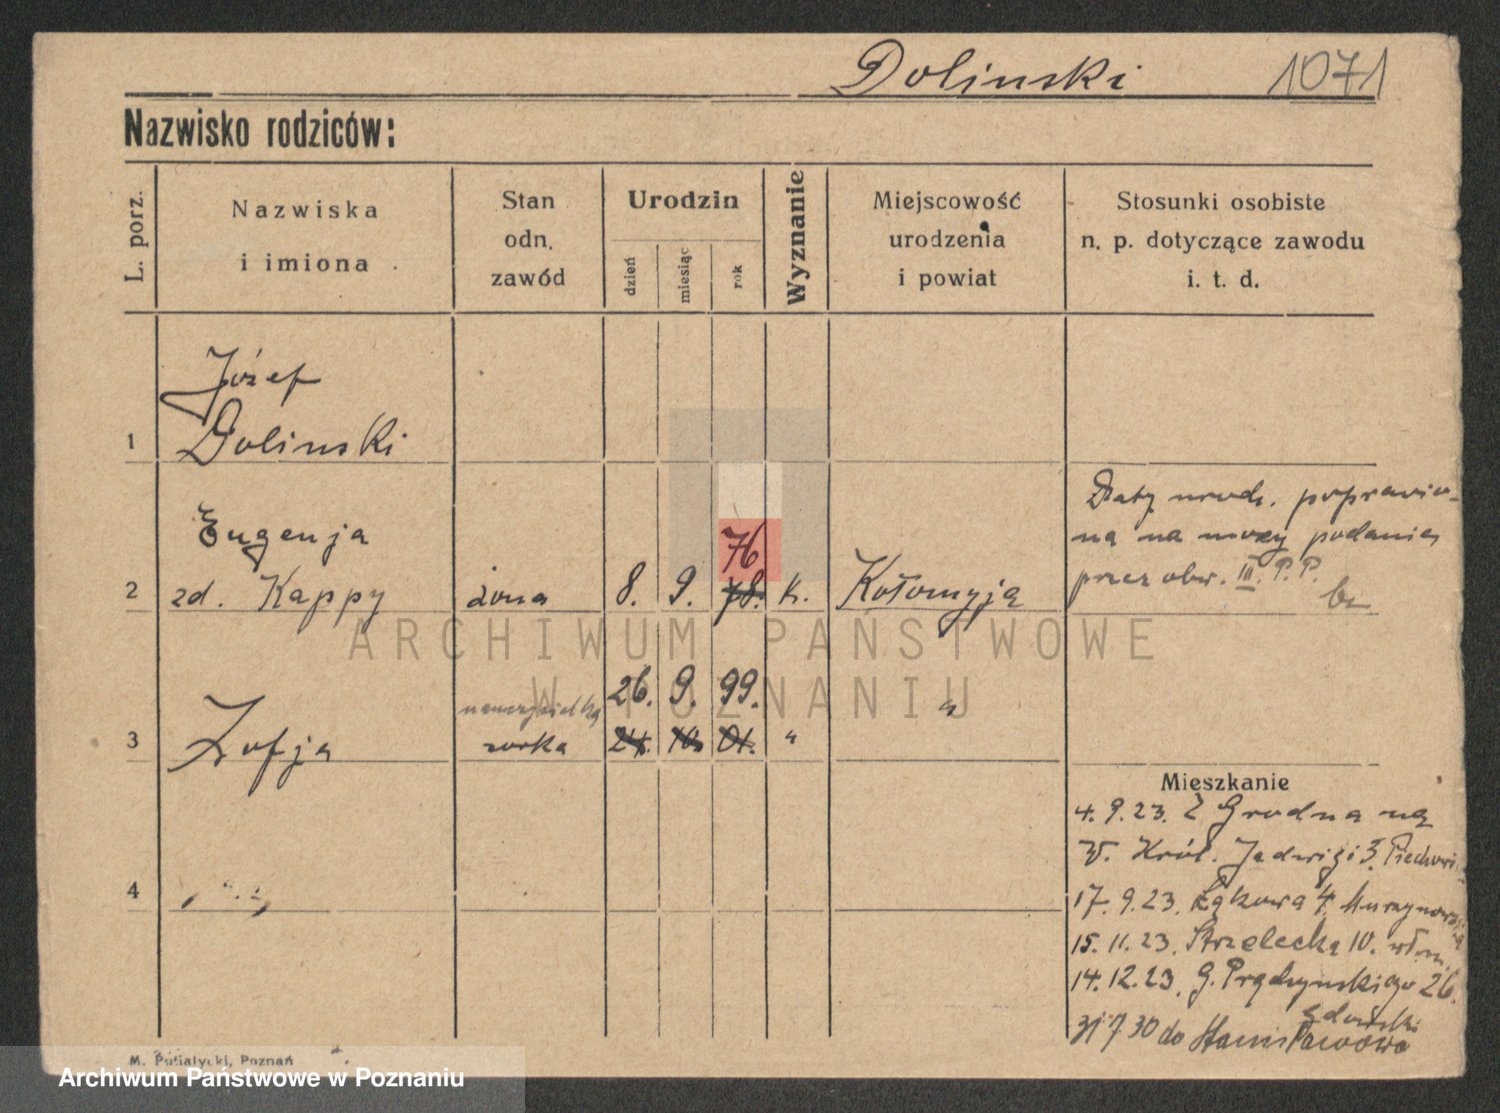 Dolinski 1071
Nazwisko rodziców:
L. porz.
Nazwiska
i imiona
Stan
odn.
zawód
Urodzin
dzień
miesiąc
rok
Wyznanie
Miejscowość
urodzenia
i powiat
Stosunki osobiste
n. p. dotyczące zawodu
i. t. d.
Józef
1 Dolinski
Eugenja
2 zd. Kappy żona 8. 9. 76 78. k. Kołomyja
Daty urodz. popravio-
na na mocy podania
przez obw. III. P. P.
ARCHIWUM PAŃSTWOWE
W POZNANIU
3 Zofja nauczycielka córka 26. 9. 99. 24. 10. 01. " "
4
Mieszkanie
4. 9. 23. Z Grodna na
W. Król. Jadwigi 3.
17. 9. 23. Łąkowa 4.
15. 11. 23. Strzelecka 10.
14. 12. 23. G. Prądzynskiego 26.
31 7. 30 do Stanisławowa
M. Putiatycki, Poznań
Archiwum Państwowe w Poznaniu